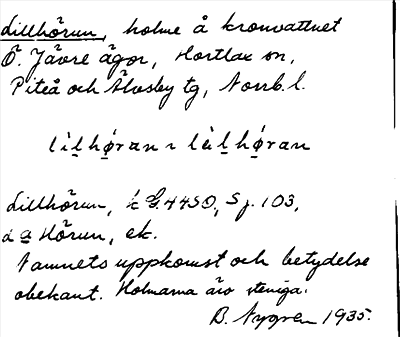 Lillhörun, holme å kronvattnet
Ö. Jävre ägor, Hortlax sn,
Piteå och Älvsby tg, Norrb. l.
Lillhörun, k G.4450, Sf. 103,
Hörun, ek.
Namnets uppkomst och betydelse
obekant. Holmarna äro steniga.
B. Nygren 1935.